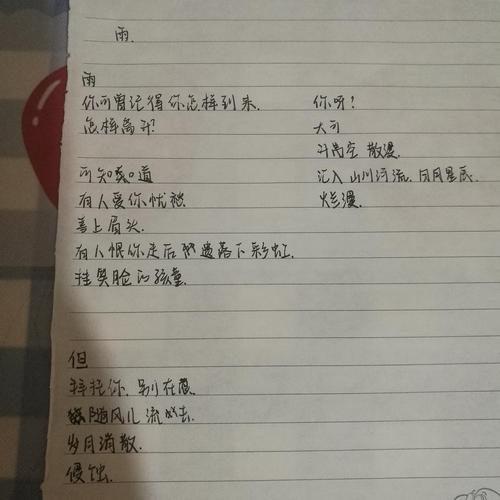 雨.
雨
你可曾记得你怎样到来.
怎样离开?
可知道
有人爱你忧
喜上眉头.
有人恨你走后遗落下彩虹.
挂笑脸的孩童.
但
拜托你.别在意.
随风儿流去.
岁月消散.
侵蚀.
你听!
大可
升高空 散漫.
汇入山川河流.日月星辰.
烂漫.